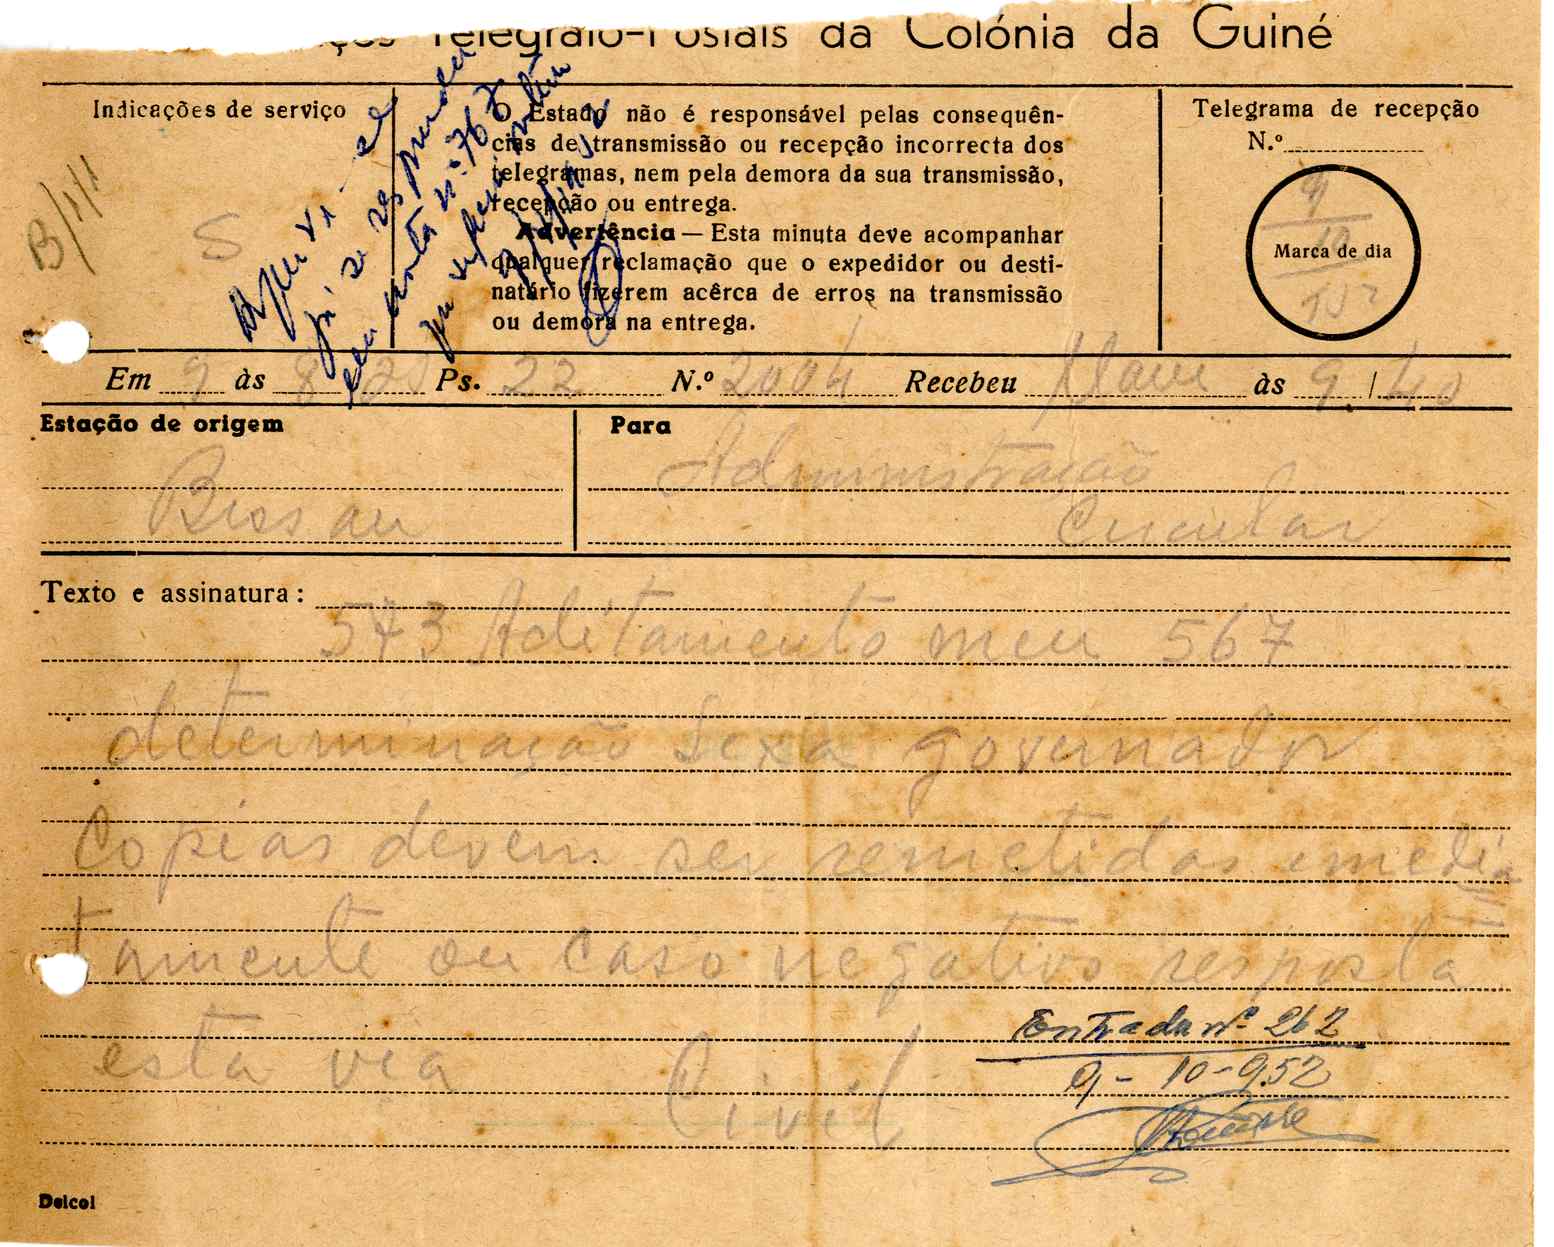 ços Telégrafo-Postais da Colónia da Guiné
Indicações de serviço
S
B/1/1
O Estado não é responsável pelas consequên-
cias de transmissão ou recepção incorrecta dos
telegramas, nem pela demora da sua transmissão,
recepção ou entrega.
Advertência — Esta minuta deve acompanhar
qualquer reclamação que o expedidor ou desti-
natário fizerem acêrca de erros na transmissão
ou demora na entrega.
já se respondeu
nota nº 767
Telegrama de recepção
N.º
9
10
Marca de dia
952
Em 9 às 8 20 Ps. 22 N.º 2004 Recebeu às 9 / 40
Estação de origem
Bissau
Para
Administração
Circular
Texto e assinatura:
573 Aditamento meu 567
determinação Sexa governador
Copias devem ser remetidas imedia
tamente ou caso negativo resposta
esta via Civil
Entrada nº 262
9-10-952
Deicol